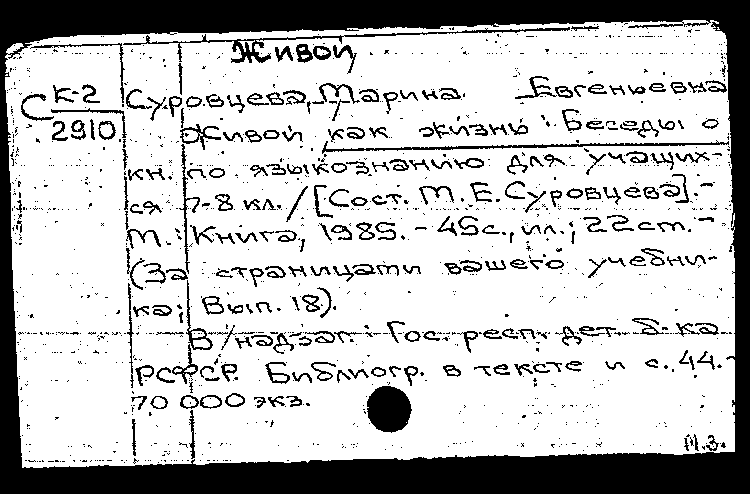 Живой
С К-2 Суровцева, Марина Евгеньевна
2910 Живой как жизнь: Беседы о
кн. по языкознанию для учащих-
ся 7-8 кл. / [Сост. М.Е. Суровцева]. -
М.: Книга, 1985. - 45с., ил.; 22 ст. -
(За страницами вашего учебни-
ка; Вып. 18).
В надзаг.: Гос. респ. дет. б-ка
РСФСР. Библиогр. в тексте и с. 44. -
70 000 экз.
М.З.